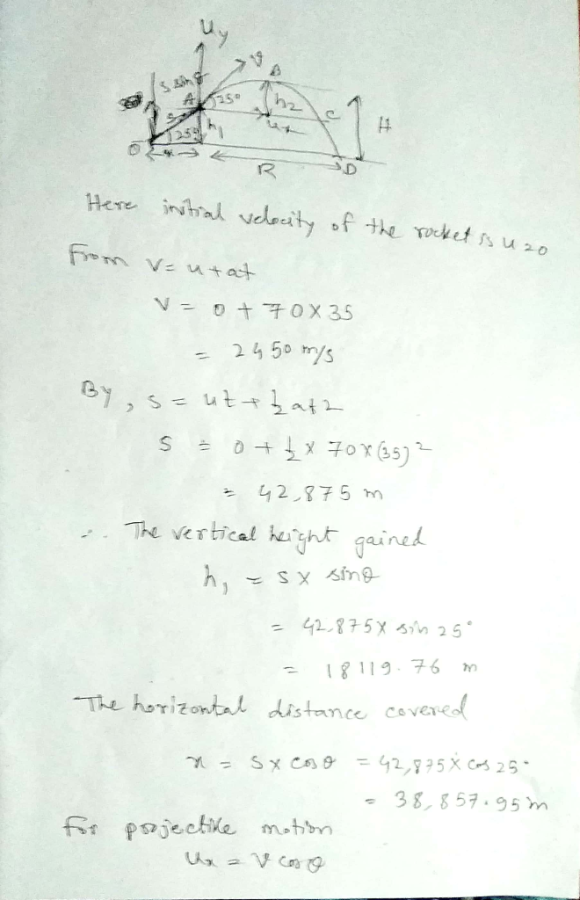 uy
v
B
s sinθ
A
25°
h2
C
ux
H
s
h1
25°
O
x
R
D
Here initial velocity of the rocket is u=0
From v = u + at
V = 0 + 70 × 35
= 2450 m/s
By, s = ut + ½ at2
S = 0 + ½ × 70 × (35)²
= 42,875 m
∴ The vertical height gained
h1 = s × sinθ
= 42,875 × sin 25°
= 18119.76 m
The horizontal distance covered
x = s × cosθ = 42,875 × cos 25°
= 38,857.95 m
for projectile motion
ux = v cosθ